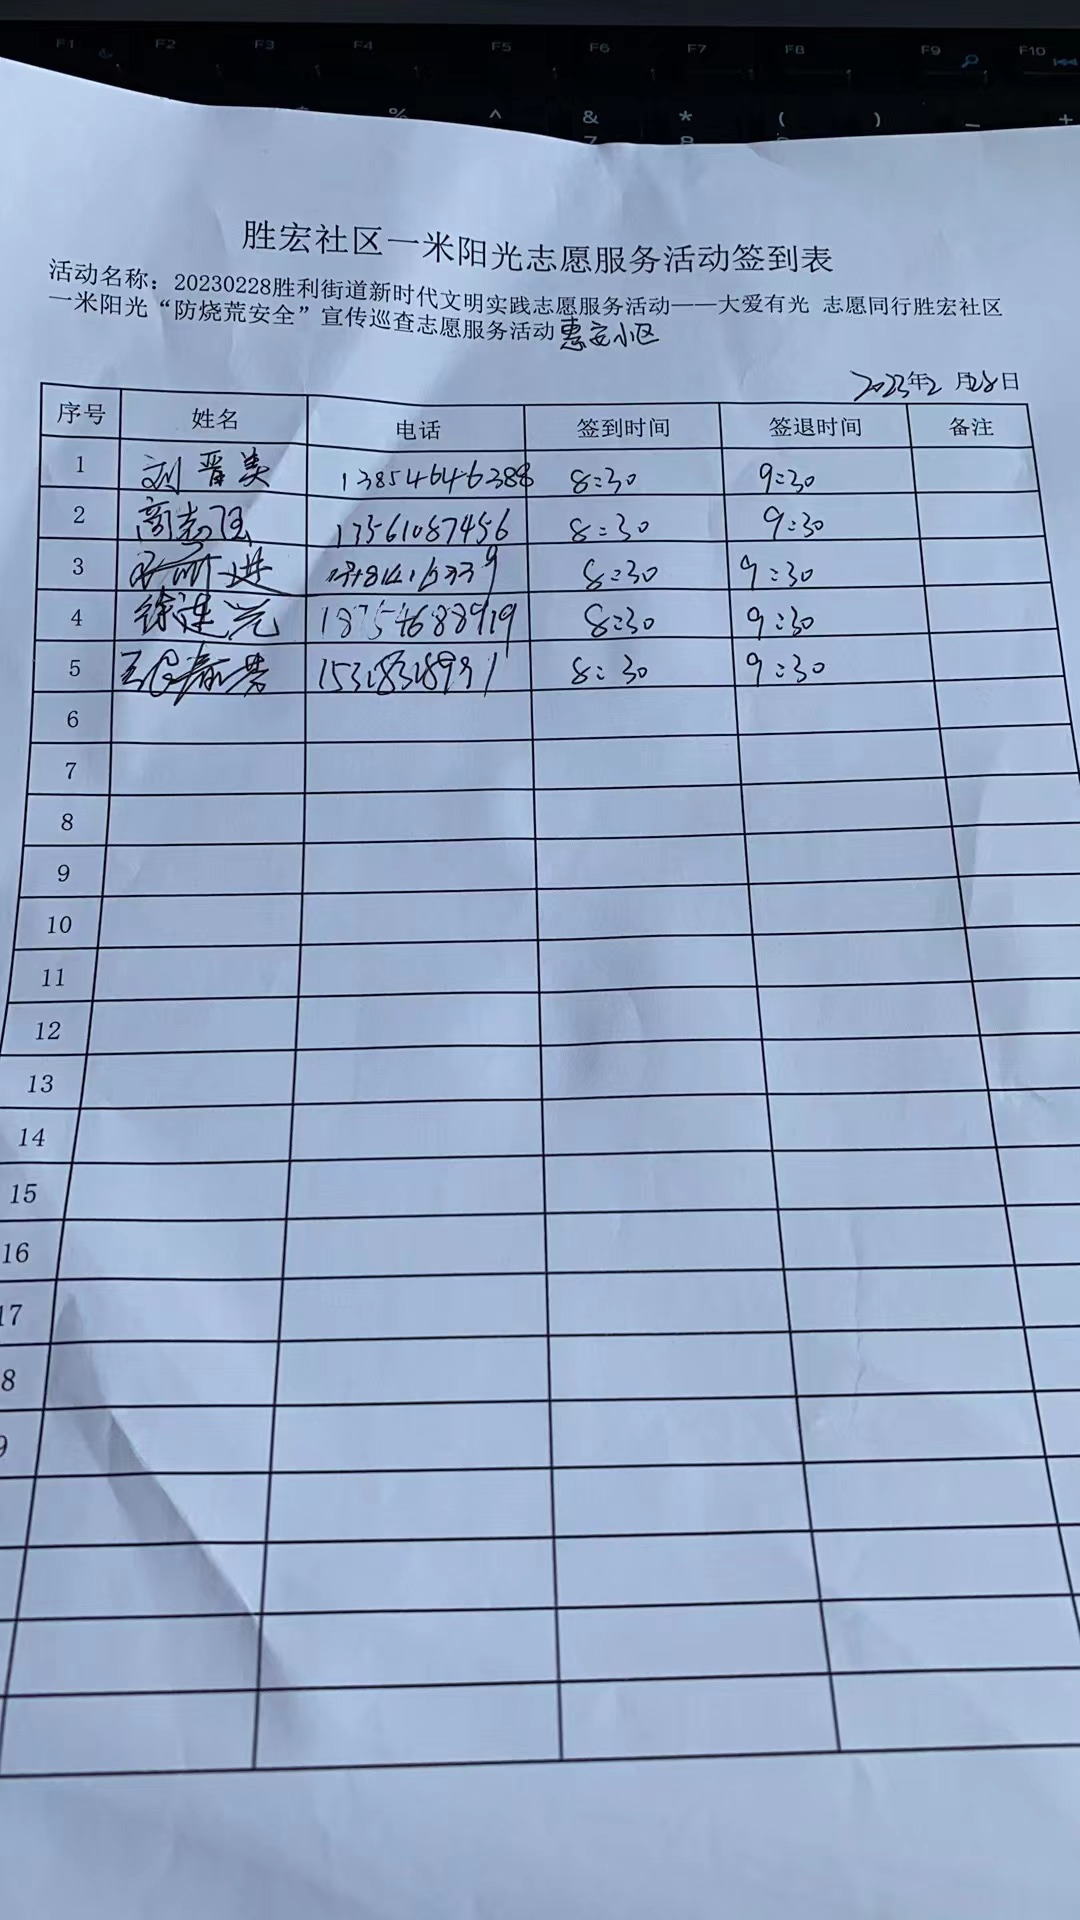 F1 F2 F3 F4 F5 F6 F7 F8 F9 F10
% ^ & * ( ) _ +
7 8
胜宏社区一米阳光志愿服务活动签到表
活动名称：20230228胜利街道新时代文明实践志愿服务活动——大爱有光 志愿同行胜宏社区
一米阳光“防烧荒安全”宣传巡查志愿服务活动惠安小区
2023年2月28日
序号 姓名 电话 签到时间 签退时间 备注
1 刘晋美 13854646388 8:30 9:30
2 13561087456 8:30 9:30
3 8:30 9:30
4 徐连兴 18754688919 8:30 9:30
5 8:30 9:30
6
7
8
9
10
11
12
13
14
15
16
17
8
9